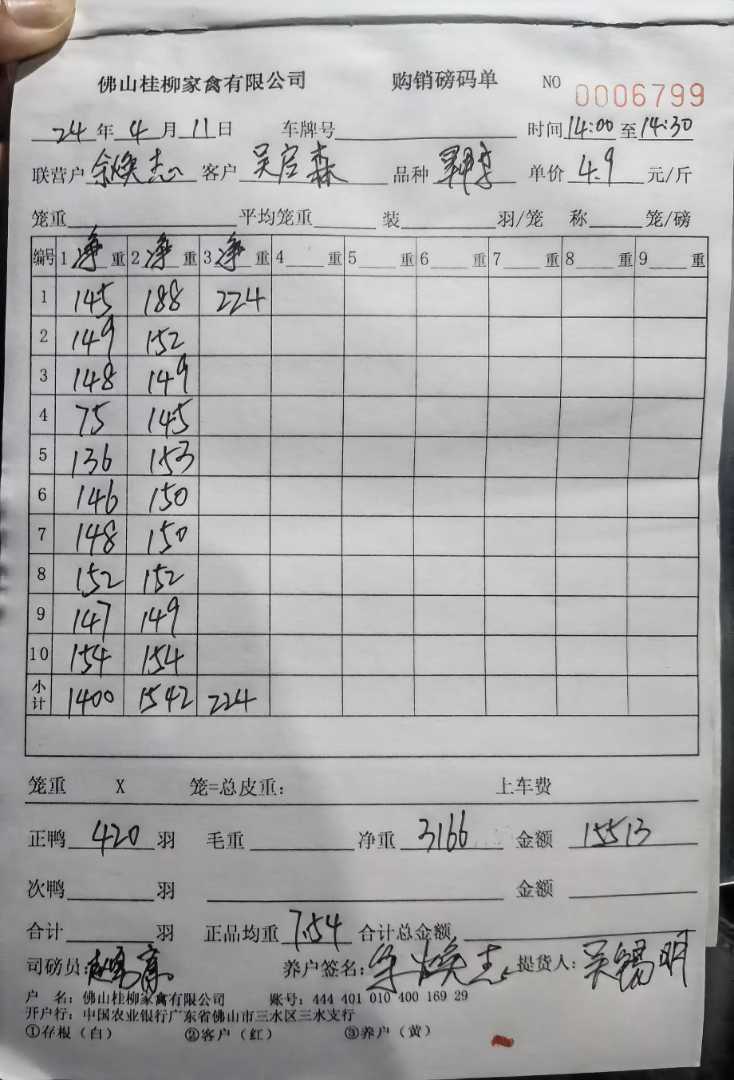 佛山桂柳家禽有限公司 购销磅码单 NO 0006799
24年4月11日 车牌号 时间14:00至14:30
联营户 余焕志 客户 吴启森 品种 单价 4.9 元/斤
笼重 平均笼重 装 羽/笼 称 笼/磅
编号 1净重 2净重 3净重 4 重 5 重 6 重 7 重 8 重 9 重
1 145 188 224
2 149 152
3 148 149
4 75 145
5 136 153
6 146 150
7 148 150
8 152 152
9 147 149
10 154 154
小计 1400 1542 224
笼重 X 笼=总皮重: 上车费
正鸭 420 羽 毛重 净重 3166 金额 15513
次鸭 羽 金额
合计 羽 正品均重 7.54 合计总金额
司磅员: 养户签名: 余焕志 提货人: 吴锡明
户 名: 佛山桂柳家禽有限公司 账号: 444 401 010 400 169 29
开户行: 中国农业银行广东省佛山市三水区三水支行
①存根（白） ②客户（红） ③养户（黄）